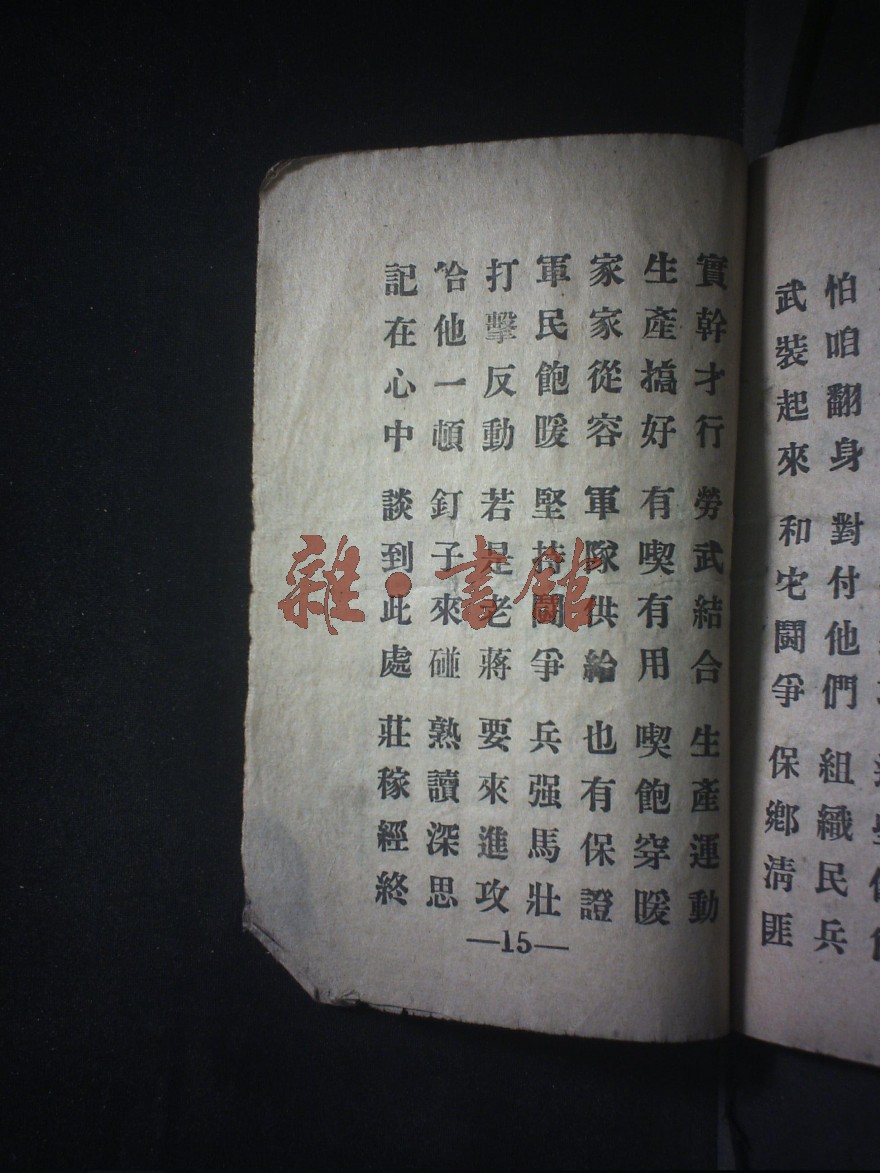 怕咱翻身 對付他們 組織民兵
武裝起來 和宅鬪爭 保鄉淸匪
實幹才行 勞武結合 生產運動
生產搞好 有喫有用 喫飽穿暖
家家從容 軍隊供給 也有保證
軍民飽暖 堅持鬪爭 兵强馬壯
打擊反動 若是老蔣 要來進攻
給他一頓 釘子來碰 熟讀深思
記在心中 談到此處 莊稼經終
—15—
雜·書館